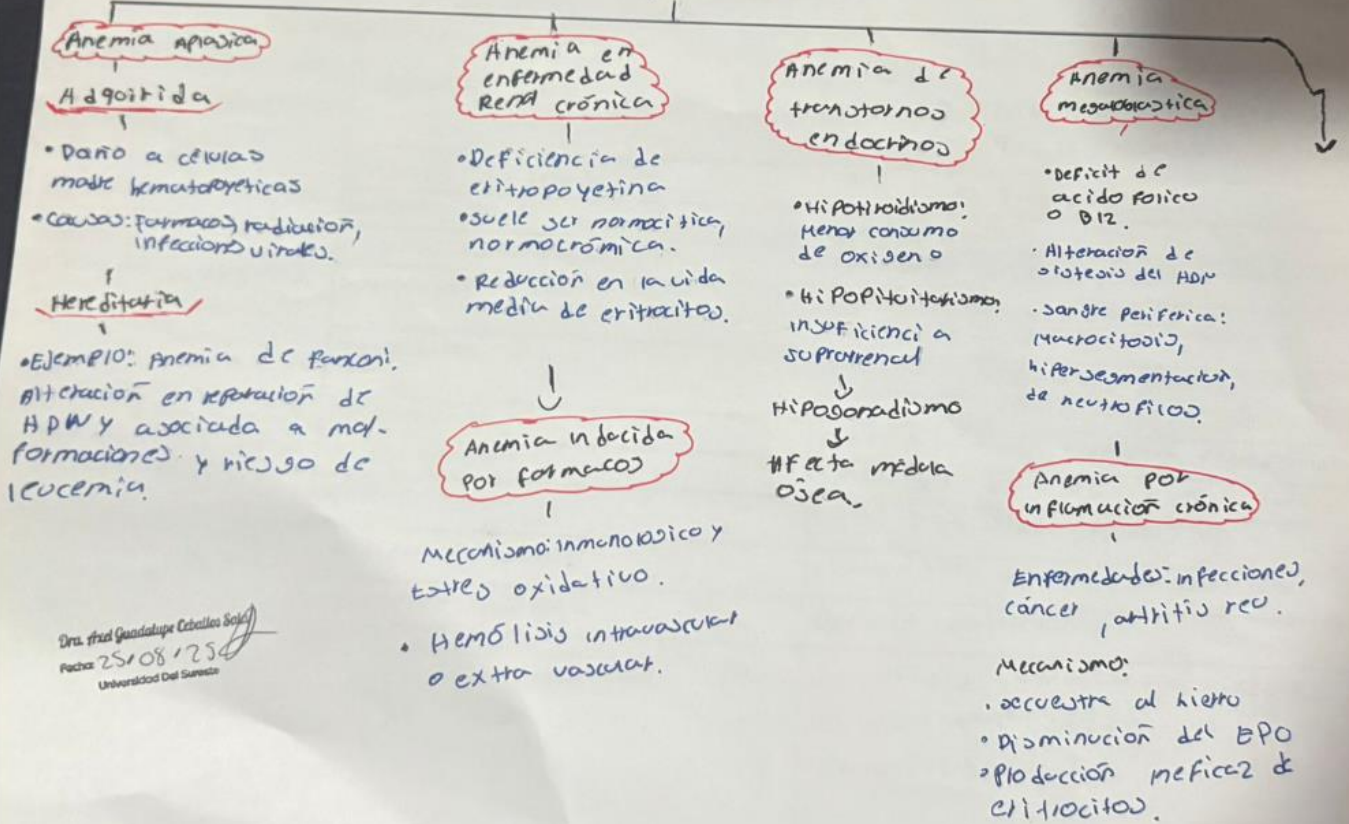 Anemia Aplasica
Adquirida
• Daño a células
madre hematopoyeticas
• Causas: farmacos, radiación,
infecciones virales.
Hereditaria
• Ejemplo: Anemia de fanconi.
Alteración en reparación de
ADN y asociada a mal-
formaciones y riesgo de
leucemia.
Dra. Axel Guadalupe Ceballos Salas
Fecha: 25/08/25
Universidad Del Sureste
Anemia en
enfermedad
Renal crónica
• Deficiencia de
eritropoyetina
• suele ser normocitica,
normocrómica.
• Reducción en la vida
media de eritrocitos.
Anemia inducida
por farmacos
Mecanismo: inmunologico y
Estres oxidativo.
• Hemólisis intravascular
o extra vascular.
Anemia de
transtornos
endocrinos
• Hipotiroidismo:
Menor consumo
de oxigeno
• Hipopituitarismo:
insuficiencia
suprarrenal
Hipogonadismo
Afecta médula
ósea.
Anemia
megaloblastica
• Deficit de
acido folico
o B12.
• Alteración de
sistesis del ADN
• sangre periferica:
Macrocitosis,
hipersegmentación,
de neutrofilos.
Anemia por
inflamación crónica
Enfermedades: infecciones,
cáncer, artritis reu.
Mecanismo:
• secuestra al hierro
• Disminución del EPO
• Producción ineficaz de
eritrocitos.